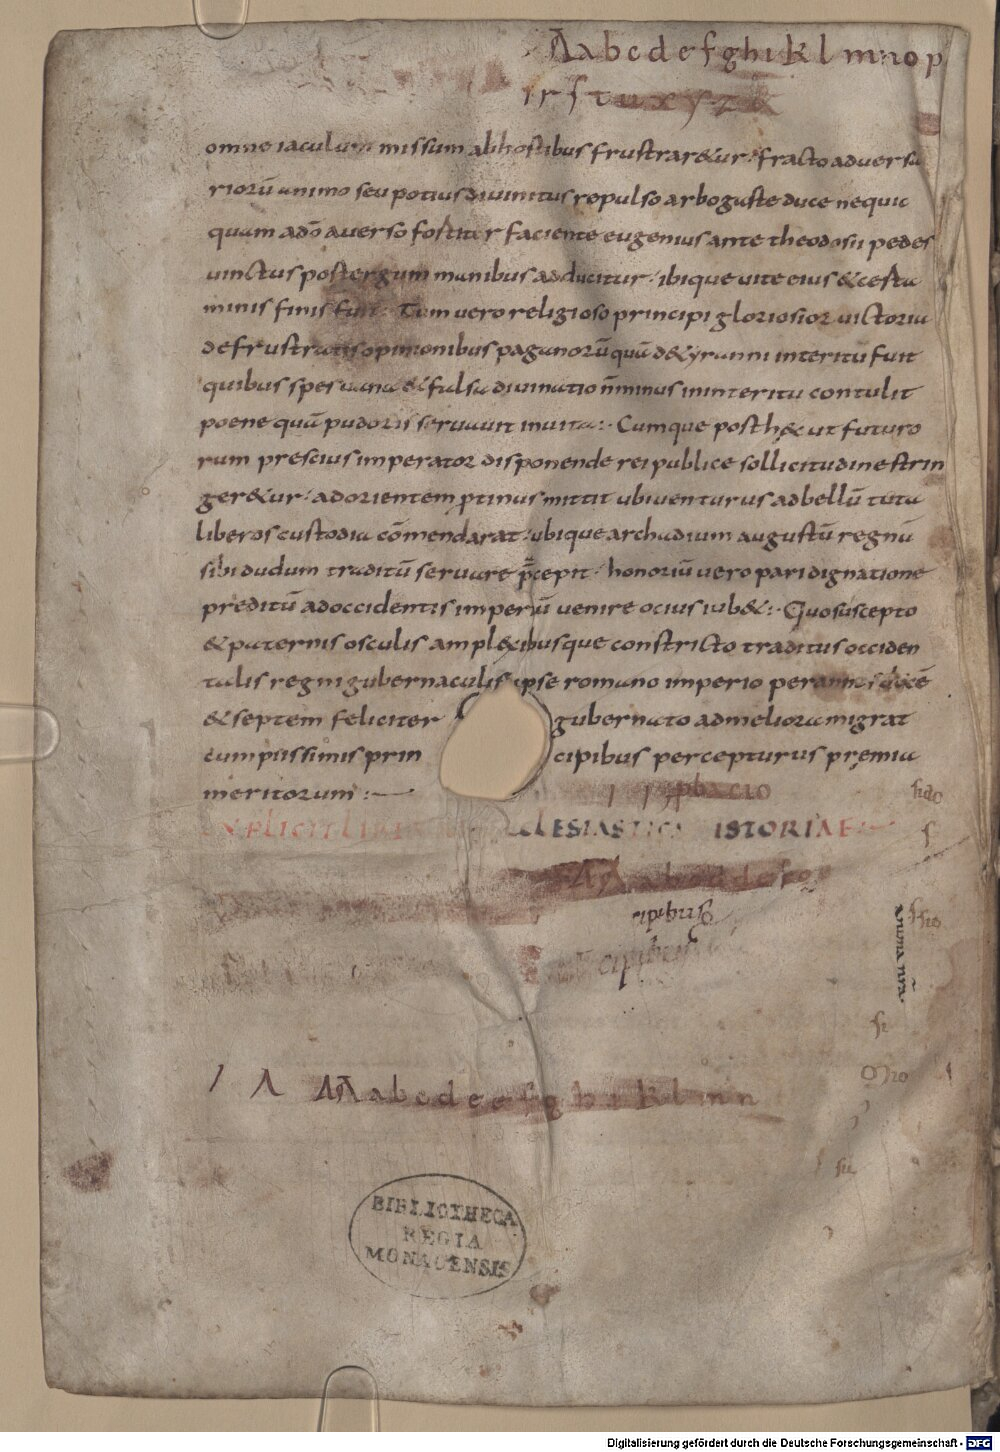 Aabcdefghiklmnop
irstuxyz&
omne iaculum missum abhostibus frustrar&ur. fracto aduersa
riorū animo seu potius diuinitus ropulso arboguste duce nequic
quam adō auerso fostiter faciente eugenius ante theodosii pedes
uinctus postergum manibus adducitur. ibique uite eius & certa
minis finis fuit. Tum uero religioso principi gloriosior uictoria
defrustratis opinionibus paganorū quā d& yranni interitū fuit
quibus spes uana & falsa diuinatio n̄ minus in interitu contulit
poene quā pudoris seruauit in uita:. Cumque posth&c ut futuro
rum prescius imperator disponende rei publice sollicitudine strin
ger&ur. ad orientem ptinus mittit ubi uenturus ad bellū tuta
liberos custodia cōmendarat. ubique archadium augustū regnū
sibi dudum traditū seruare p̄cepit. honoriū uero pari dignatione
preditū ad occidentis imperiū uenire ocius iub&:. Quo suscepto
& paternis osculis ampl&ibusque constricto traditus occiden
talis regni gubernaculis ipse romano imperio per annos decē
& septem feliciter gubernato ad meliora migrat
cum piissimis prin cipibus percepturus premia
meritorum:
EXPLICIT LIBER ECLESIASTICA ISTORIAE
AA abcddefog
cipibus
cipibus
A AA abcdeefghiklmn
BIBLIOTHECA
REGIA
MONACENSIS
Digitalisierung gefördert durch die Deutsche Forschungsgemeinschaft - DFG